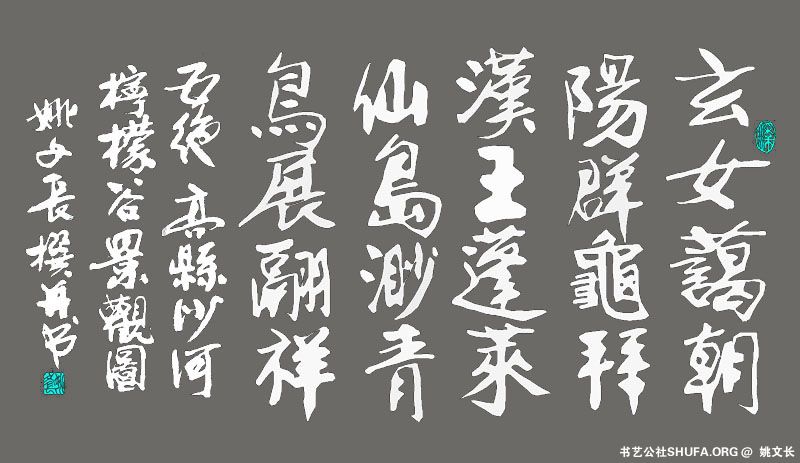 玄女藹朝
陽群龜拜
漢王蓬萊
仙島渺青
鳥展翮祥
五绝 高縣沙河
檸檬谷景觀圖
姚文長撰并书
书艺公社SHUFA.ORG @ 姚文长